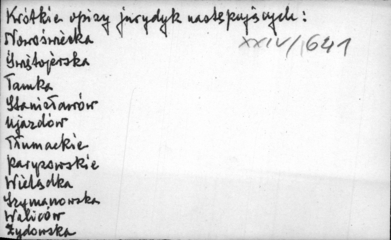 Krótkie opisy jurydyk następujących:
Nowoświecka
XXIV/641
Świętojerska
Tamka
Stanisławów
Ujazdów
Tłumackie
Paryzowskie
Wielądka
Szymanowska
Waliców
Żydowska